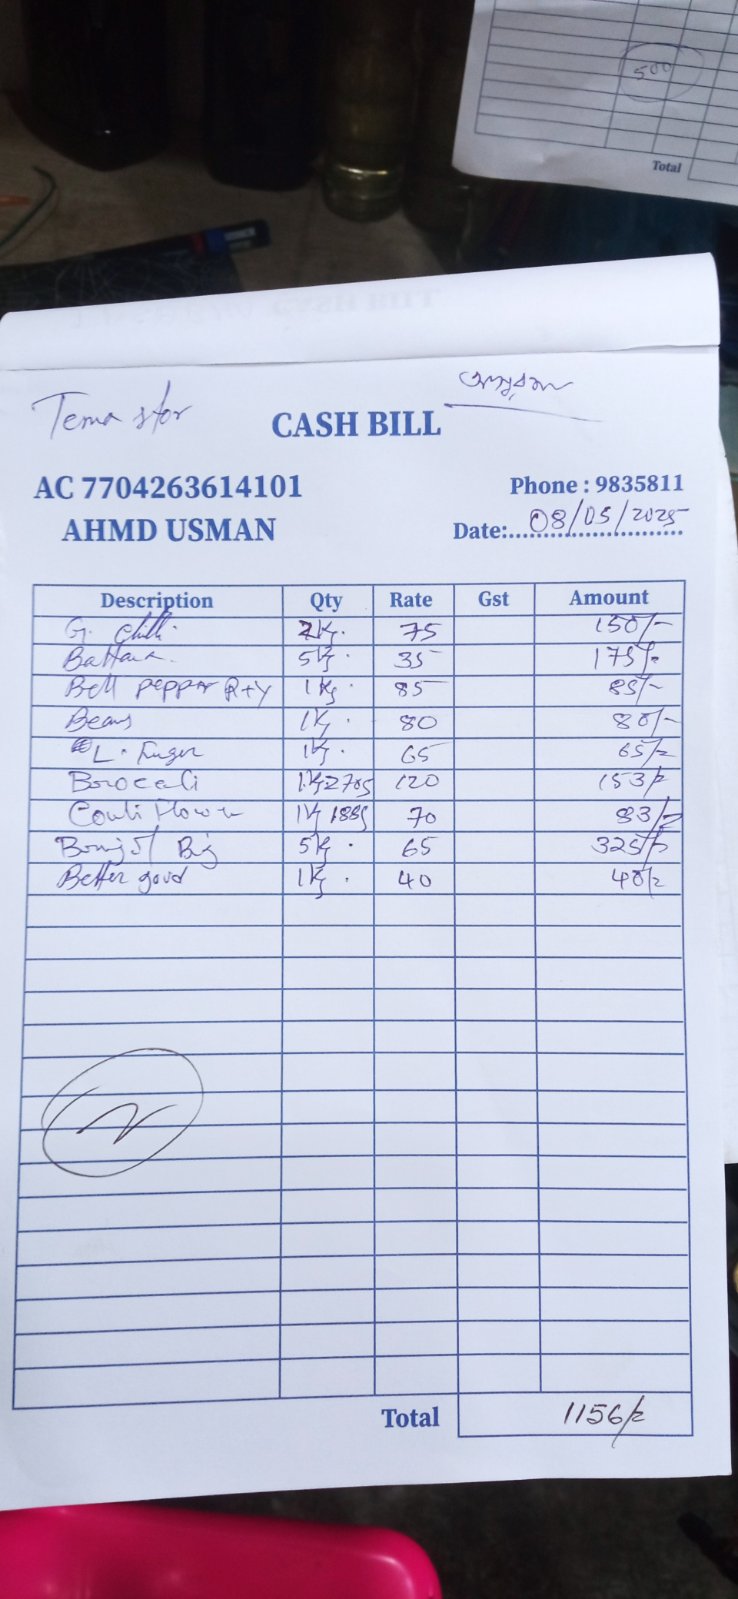 500
Total
Tema stor
CASH BILL
AC 7704263614101
Phone : 9835811
AHMD USMAN
Date:..... 08/05/2025
Description Qty Rate Gst Amount
G. chilli. 2Kg. 75 150/-
5Kg. 35 175/-
Bell pepper R+Y 1Kg. 85 85/-
Beans 1Kg. 80 80/-
L. Finger 1Kg. 65 65/-
Brocali 1Kg 270g 120 153/-
Couli Flower 1Kg 188g 70 83/-
Big 5Kg. 65 325/-
Better gourd 1Kg. 40 40/-
Total 1156/-